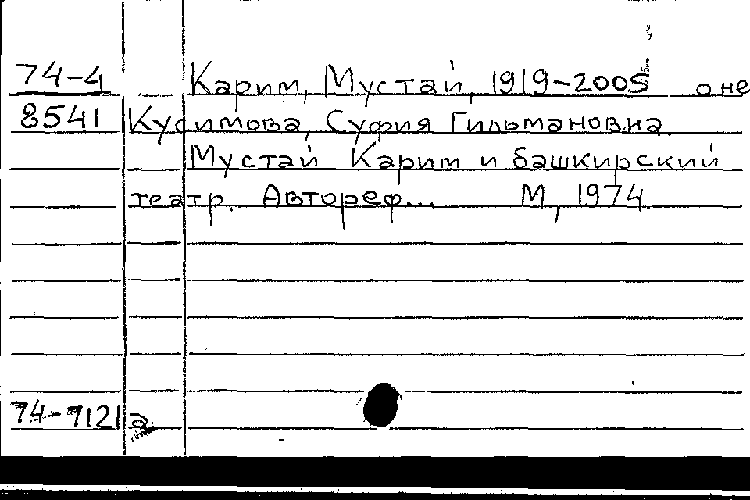 74-4 Карим, Мустай, 1919-2005 о не
8541 Кусимова, Суфия Гильмановна.
Мустай Карим и башкирский
театр. Автореф... М, 1974
74-7121а